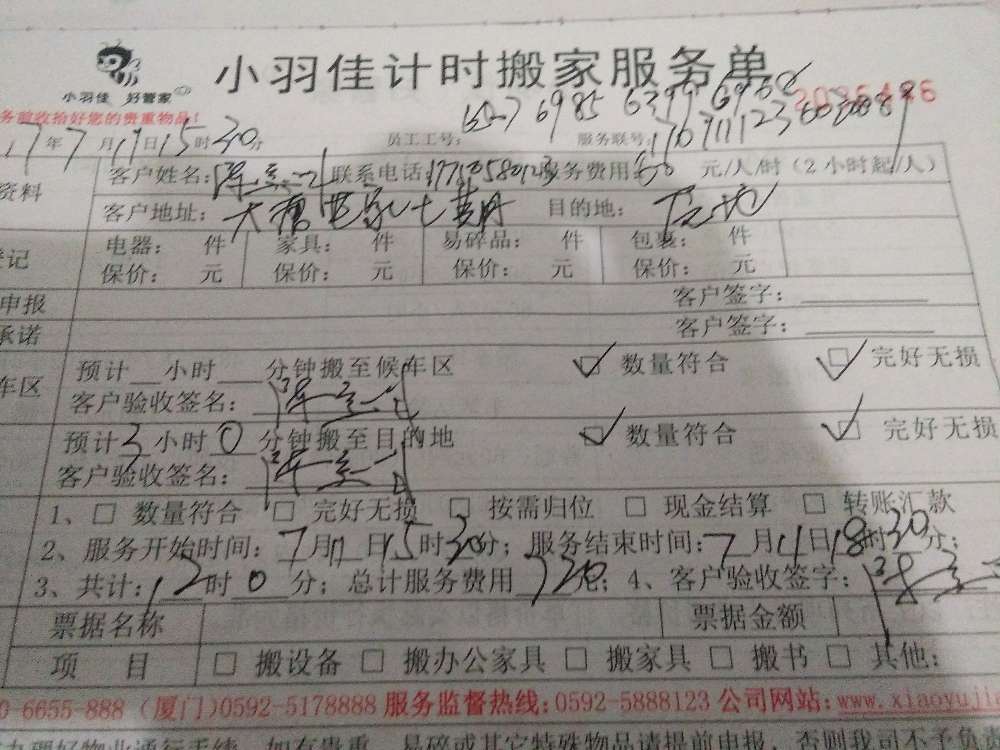 小羽佳计时搬家服务单
小羽佳 好管家
务前收拾好您的贵重物品!
17年7月11日15时30分 员工工号: 6507 6985 6399 6982 服务联号:
资料 客户姓名: 联系电话: 服务费用60元/人/时(2小时起/人)
客户地址: 七期 目的地:
登记 电器: 件 家具: 件 易碎品: 件 包裹: 件
保价: 元 保价: 元 保价: 元 保价: 元
申报 客户签字:
承诺 客户签字:
车区 预计 小时 分钟搬至候车区 数量符合 完好无损
客户验收签名:
预计3小时0分钟搬至目的地 数量符合 完好无损
客户验收签名:
1、□ 数量符合 □ 完好无损 □ 按需归位 □ 现金结算 □ 转账汇款
2、服务开始时间:7月11日15时30分;服务结束时间:7月11日18时30分;
3、共计:12时0分;总计服务费用720元;4、客户验收签字:
票据名称 票据金额
项 目 □ 搬设备 □ 搬办公家具 □ 搬家具 □ 搬书 □ 其他:
0-6655-888 (厦门)0592-5178888 服务监督热线:0592-5888123 公司网站:www.xiaoyujia
办理好物业通行手续,如有贵重、易碎或其它特殊物品请提前申报,否则我司不予负责